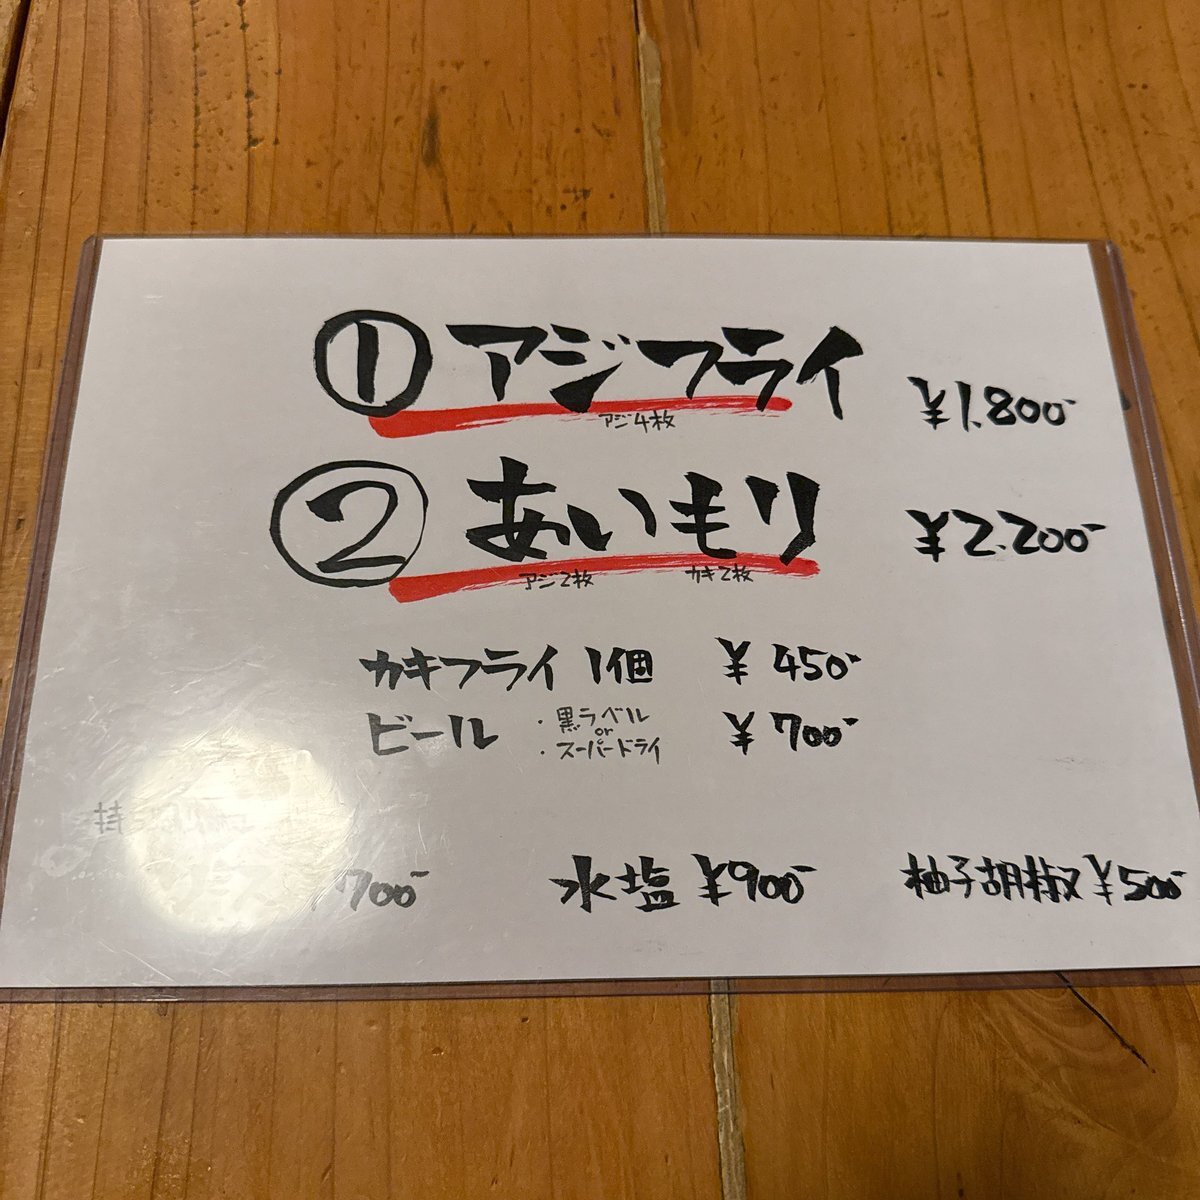 ① アジフライ ¥1.800-
アジ4枚
② あいモリ ¥2.200-
アジ2枚 カキ2枚
カキフライ 1個 ¥450-
ビール ・黒ラベル or ・スーパードライ ¥700-
持
700- 水塩 ¥900- 柚子胡椒 ¥500-